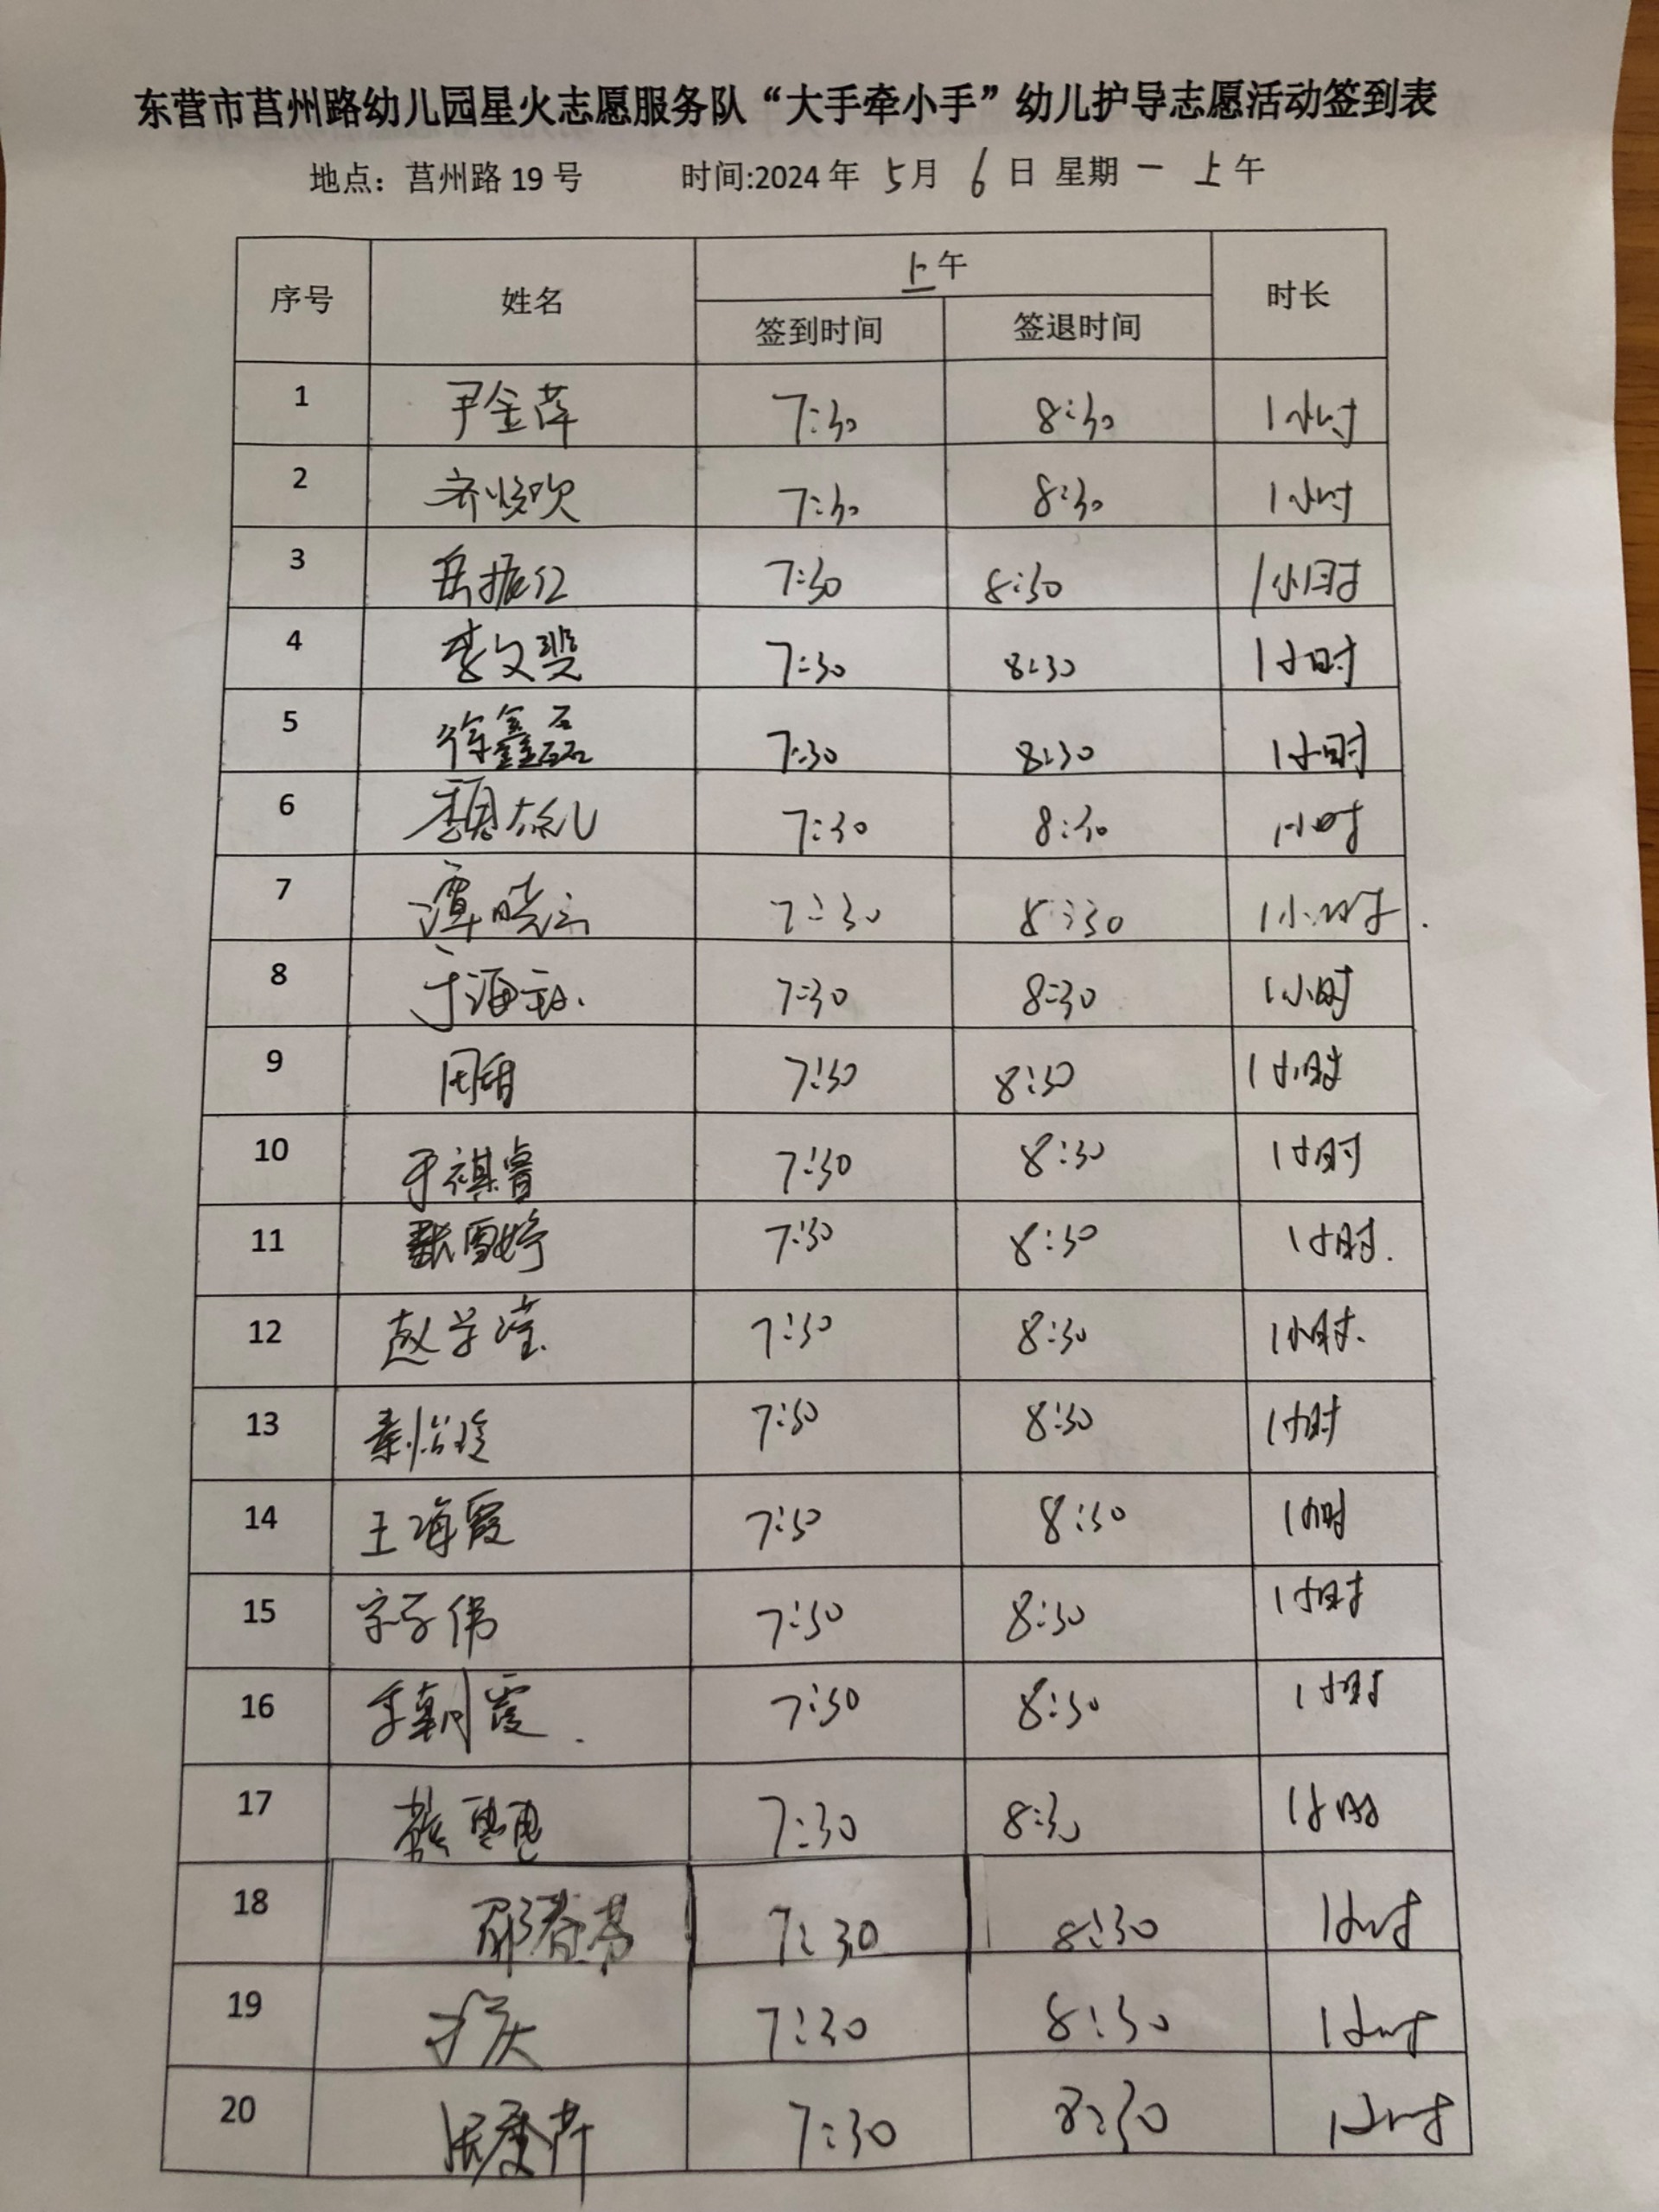 东营市莒州路幼儿园星火志愿服务队“大手牵小手”幼儿护导志愿活动签到表
地点：莒州路 19 号 时间:2024 年 5月 6 日 星期 一 上午
序号 姓名 上午 时长
签到时间 签退时间
1 尹金萍 7:30 8:30 1小时
2 7:30 8:30 1小时
3 岳振红 7:30 8:30 1小时
4 李文斐 7:30 8:30 1小时
5 徐鑫磊 7:30 8:30 1小时
6 7:30 8:30 1小时
7 谭晓云 7:30 8:30 1小时.
8 7:30 8:30 1小时
9 周甜 7:30 8:30 1小时
10 于祺睿 7:30 8:30 1小时
11 张雪婷 7:30 8:30 1小时.
12 赵学滢. 7:30 8:30 1小时.
13 秦怡玲 7:30 8:30 1小时
14 王海霞 7:30 8:30 1小时
15 7:30 8:30 1小时
16 李朝霞. 7:30 8:30 1小时
17 7:30 8:30 1小时
18 邵春芳 7:30 8:30 1小时
19 7:30 8:30 1小时
20 7:30 8:30 1小时